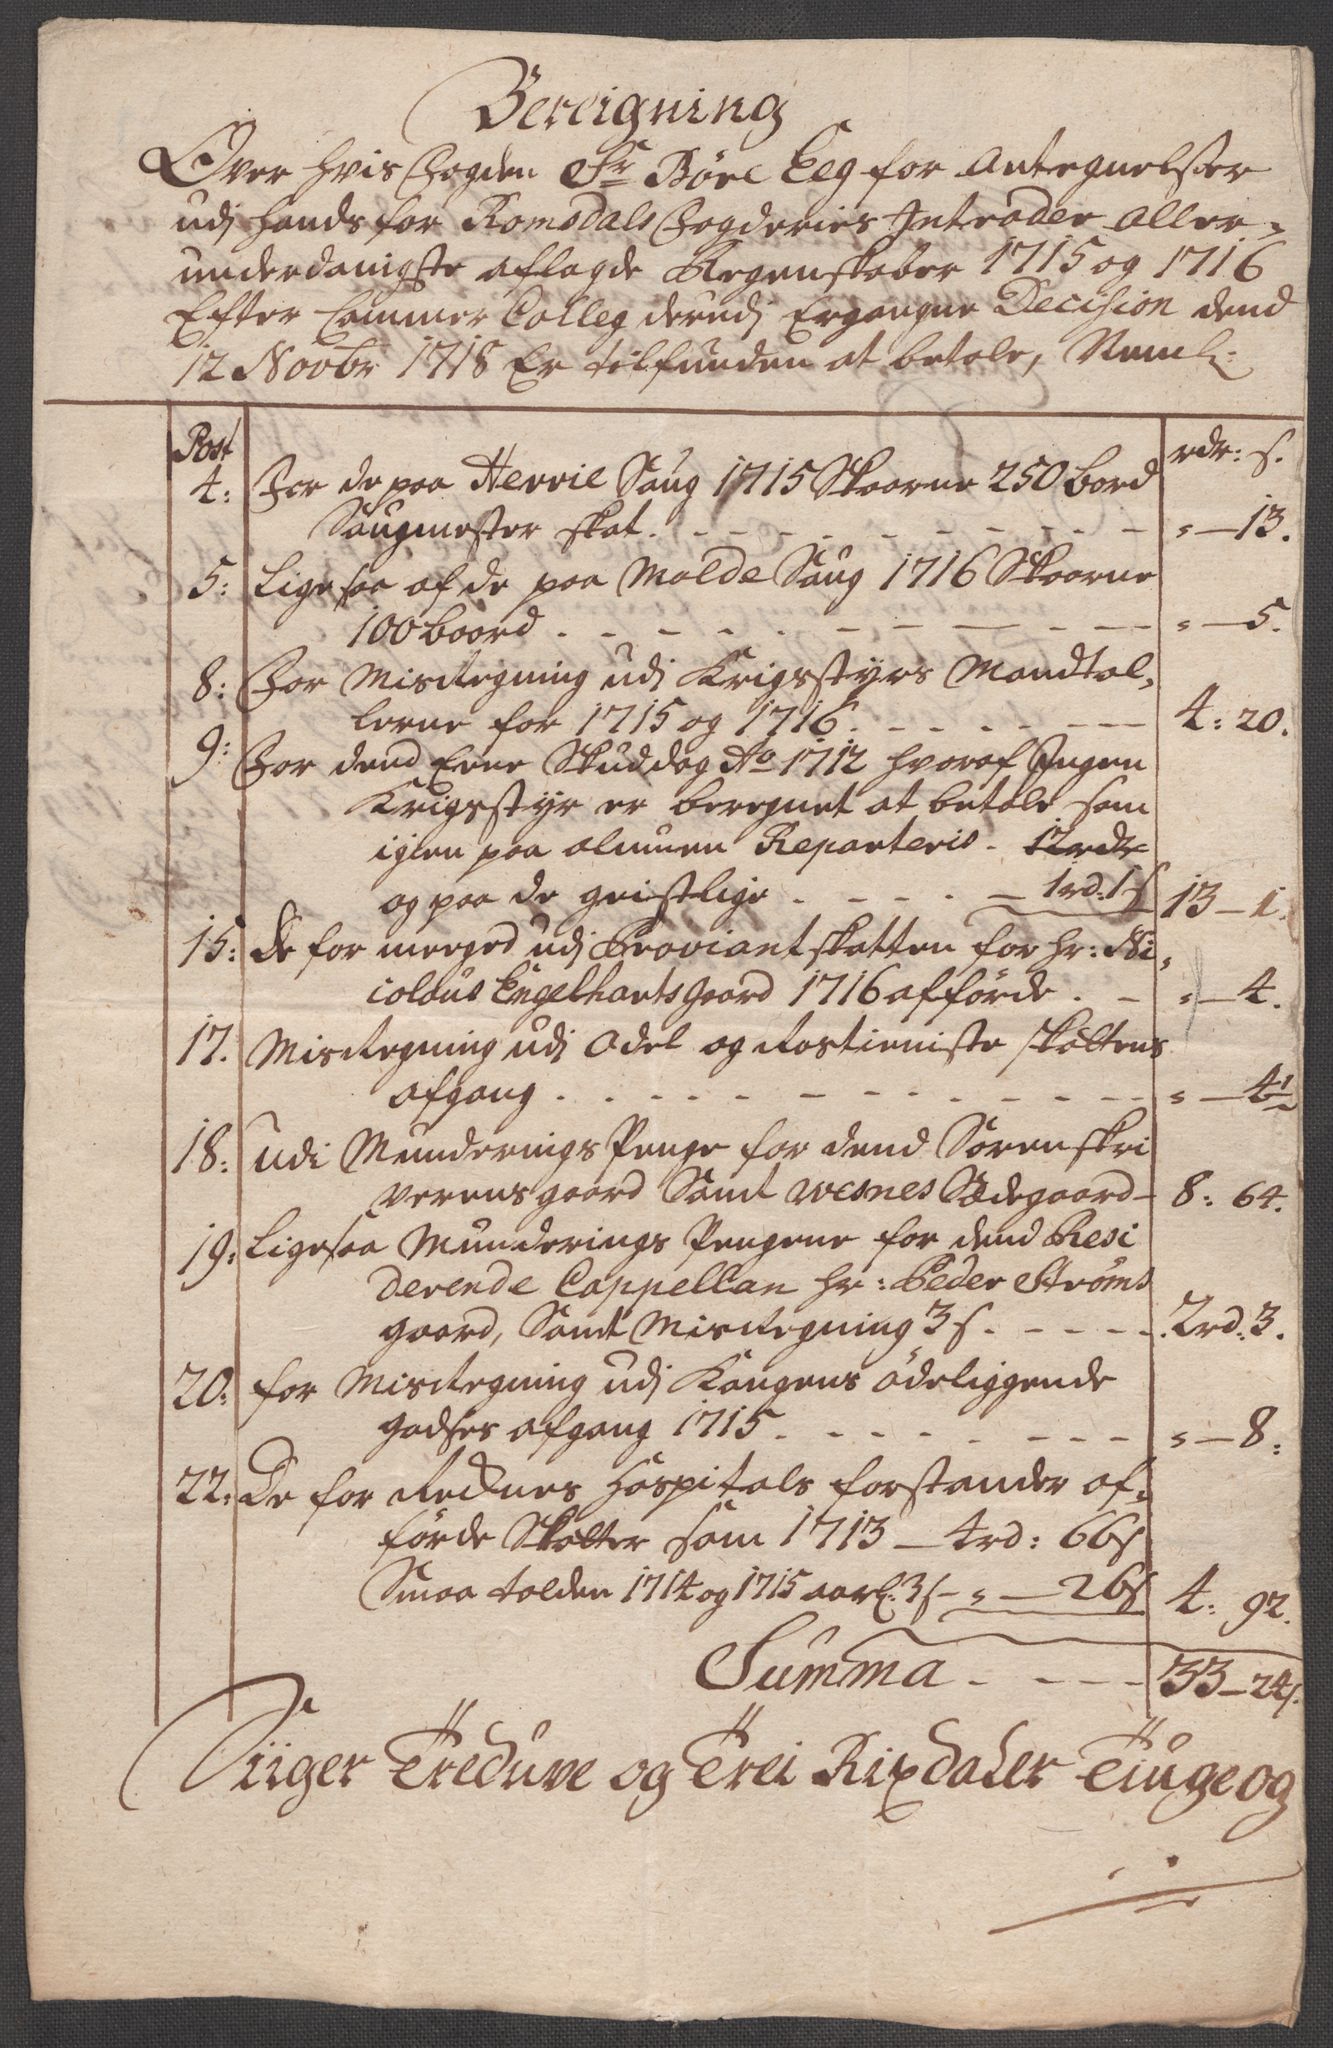 Bereigning
Over hvis Fogden Sr Böre Eeg for Antegnelser
udj hands for Romsdals Fogderies Intrader aller-
underdanigste aflagde Regenskaber 1715 og 1716
Efter Cammer Colleg derudj Ergangne Decision dend
12 Novbr 1718 Er tilfunden at betale, Neml:
Post
rdr: s.
4: For de paa Herrie Saug 1715 Skaarne 250 bord
Saugmester skat. - - - - - - - - - " — 13.
5: Ligesaa af de paa Molde Saug 1716 Skaarne
100 boord . - - - - - - - - - " — 5.
8: For Misregning udj Krigsstyrs Mandtal-
lerne for 1715 og 1716. - - - - - - 4: 20.
9: For dend Eene Skuddag Ao 1712 hvoraf Ingen
Krigsstyr er beregnet at betale som
igien paa almuen Reparteris. 12 rdr
og paa de geistlige . - - - - 1rd: 1s 13 — 1.
15: De for meeged udj Proviantskatten for hr: Ni-
colaus Engelharts gaard 1716 afförde . - " — 4.
17. Misregning udj Odel og Rostieniste skattens
afgang . - - - - - - - - - " — 4½
18: udi Munderings Penge for dend Sorenskri
verens gaard Samt Wesnes Sædegaard - 8: 64.
19: Ligesaa Munderings Pengene for dend Resi
derende Cappellan hr: Peder Ströms
gaard, Samt Misregning 3s. - - - - - 2rd: 3.
20: for Misregning udj Kongens ödeliggende
godses afgang 1715 . - - - - - - - " — 8:
22: De for Reknes Hospitals forstander af-
förde Skatter som 1713 — 4rd: 66s
Smaa tolden 1714 og 1715 aarl: 3s - " — 26s 4: 92.
Summa . - - - - 33 — 24s.
Siiger Treduve og Trei Rixdaler Tiuge og